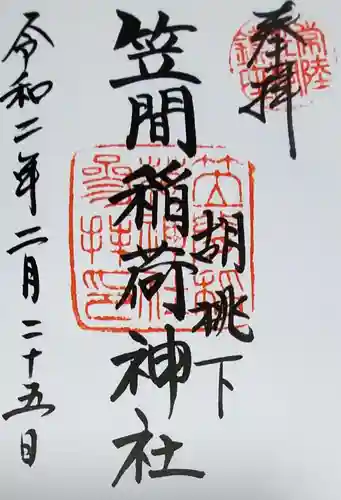 奉拝
胡桃下
笠間稲荷神社
令和二年二月二十五日